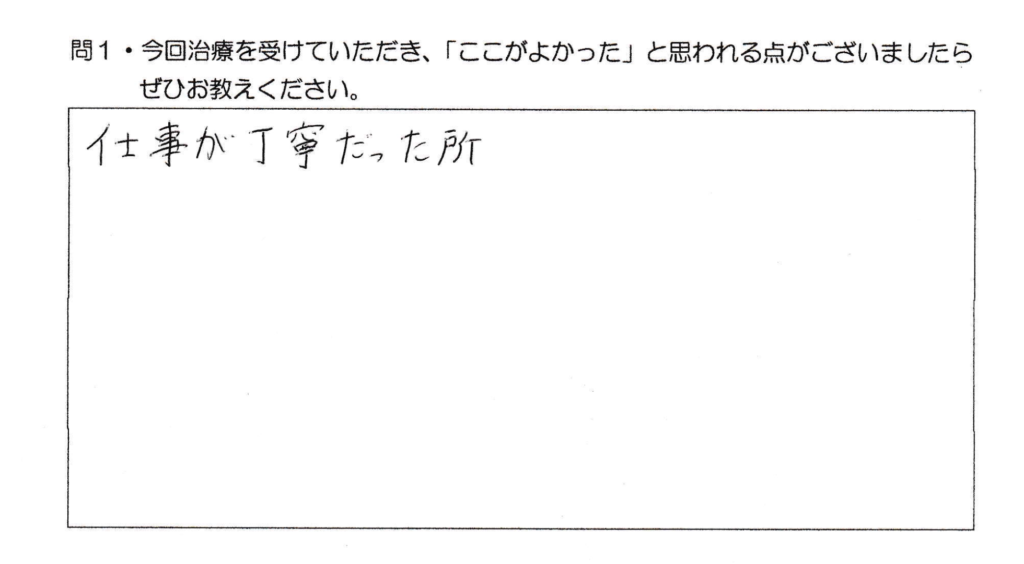 問１・今回治療を受けていただき、「ここがよかった」と思われる点がございましたら
ぜひお教えください。
仕事が丁寧だった所